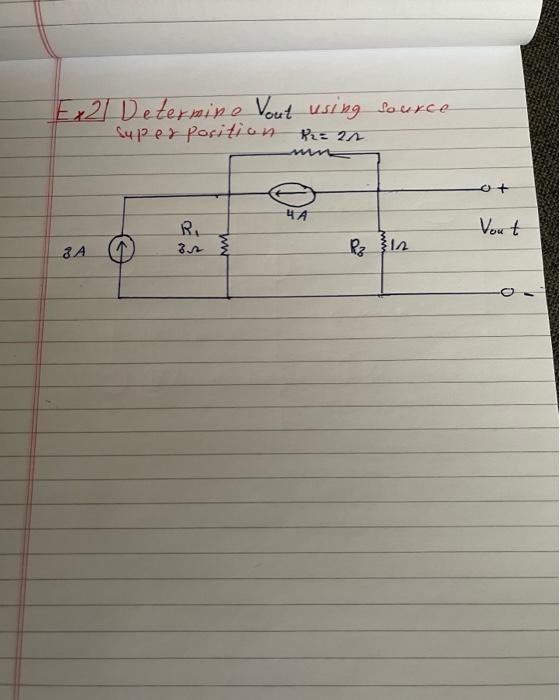 Ex2] Determine Vout using source
superposition R2 = 2Ω
4A
+
R1
3Ω
Vout
3A
R3
1Ω
-